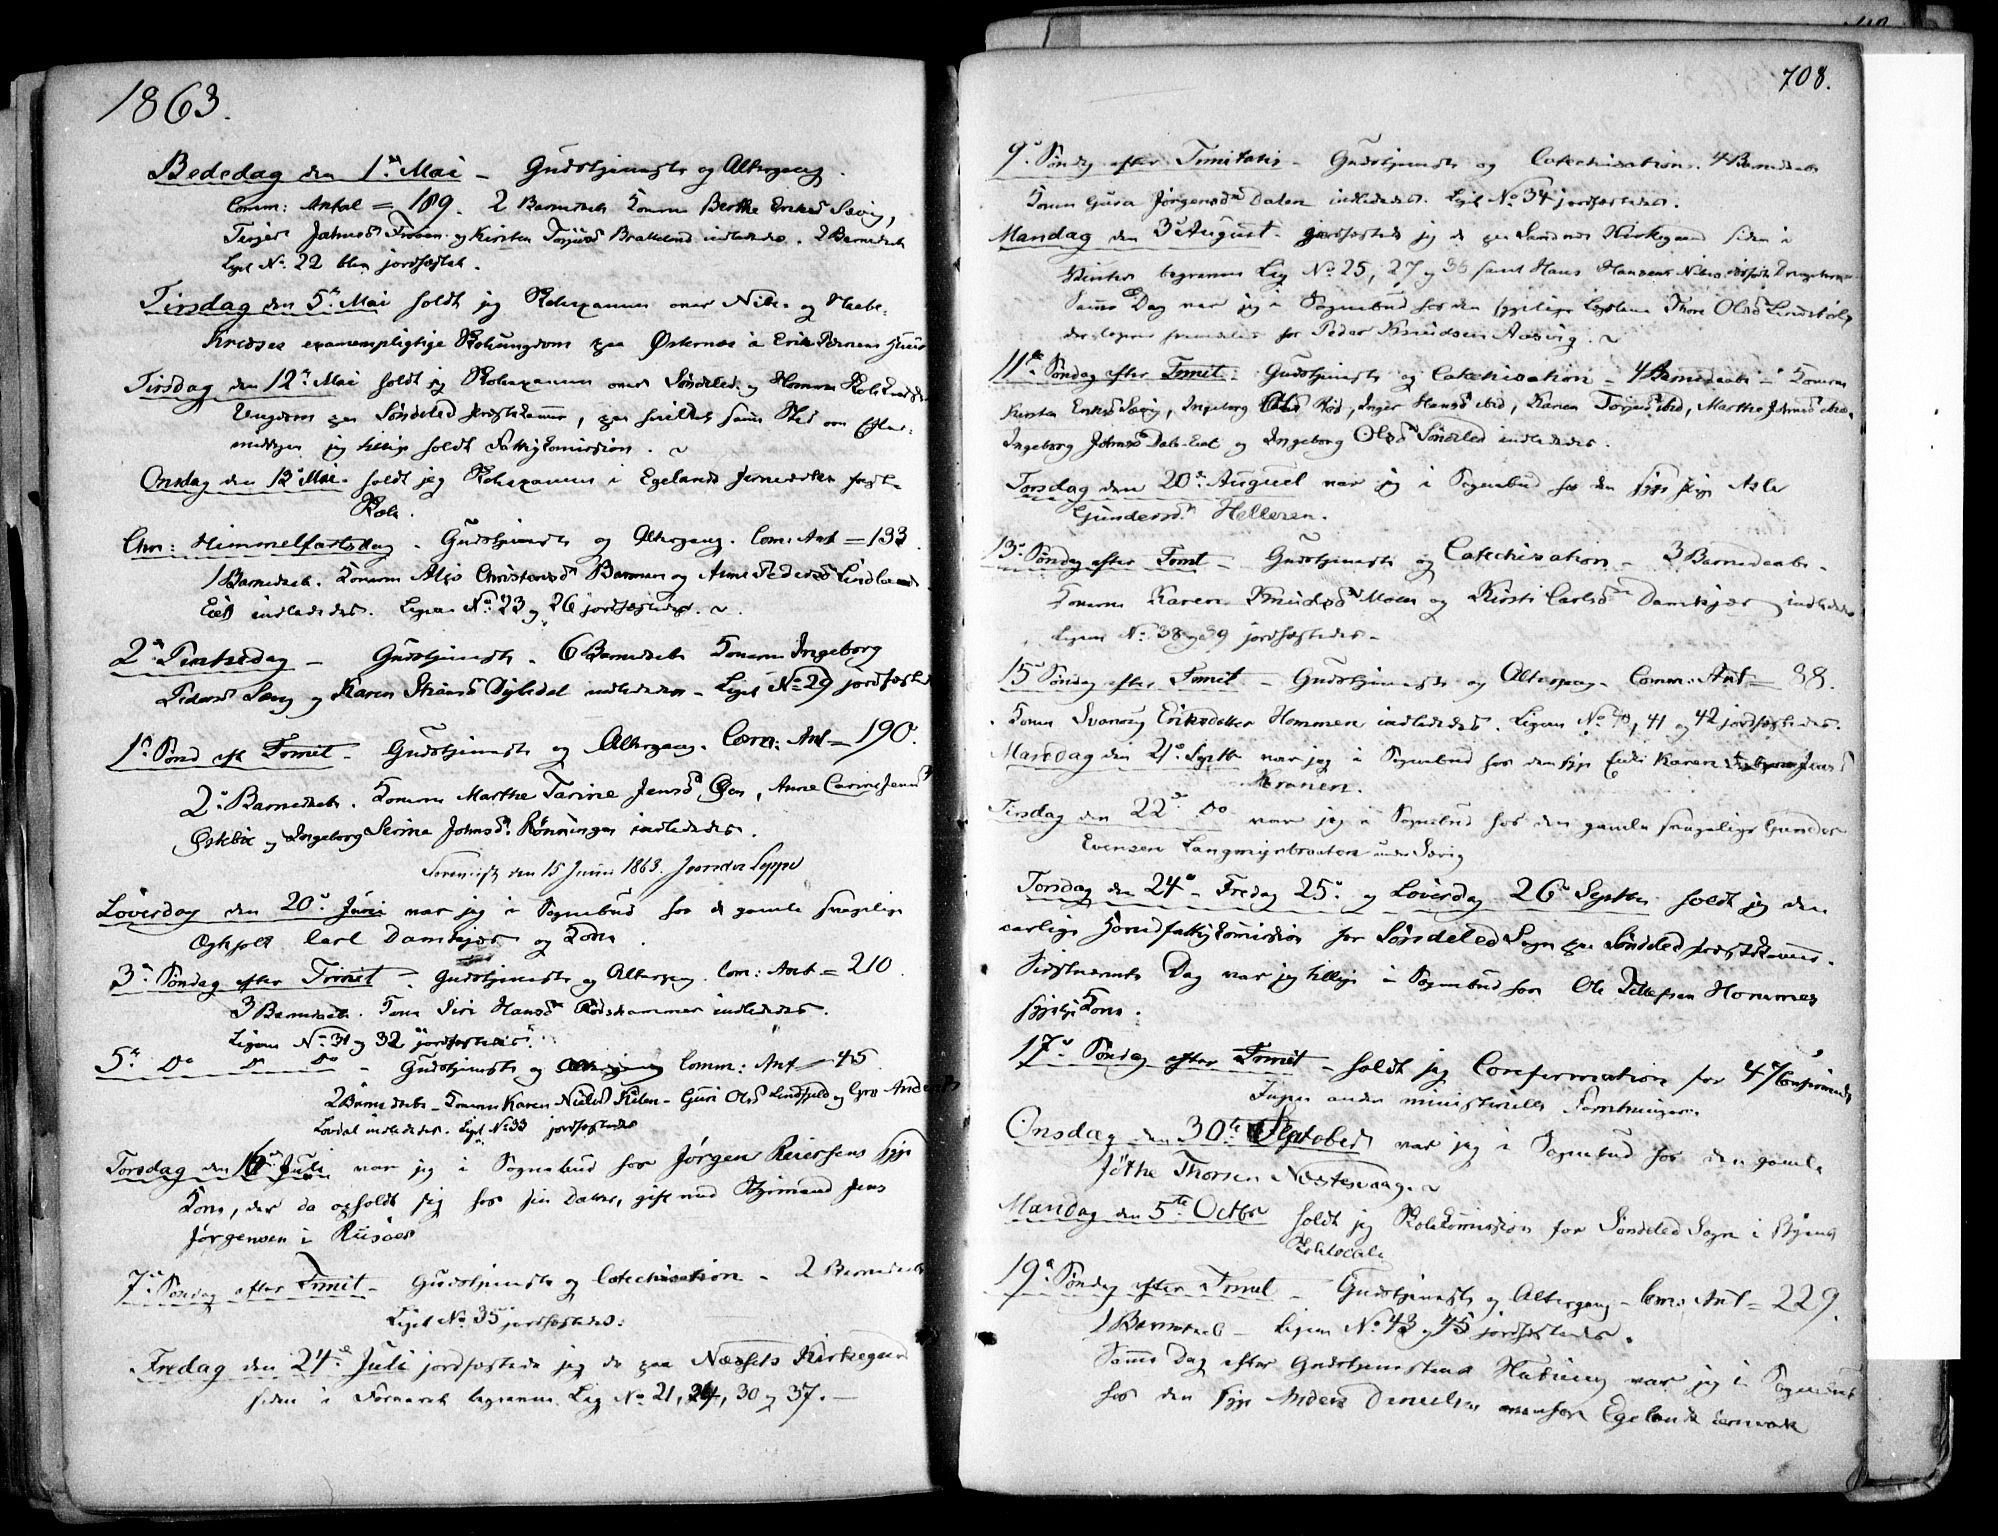 1863.
Bededag den 1ste Mai – Gudstjeneste og Altergang.
Comm: Antal = 189. 2 Barnedaab Konerne Berthe Eriksd Sævig,
Terjer Jahnsd Froen og Kirsten Torjusd Brakelund indlededes. 2 Barnedaab
Liget No. 22 blev jordfæstet.
Tirsdag den 5te Mai holdt jeg Skoleexamen over Nibe- og Slaabe-
Kredses examenspligtige Skoleungdom paa Østernæs i Erik Pernens Huus
Tirsdag den 12te Mai holdt jeg Skoleexamen over Søndeled og Hommen Skolekredses
Ungdom paa Søndeled Præstekammer, paa hvilket samme Sted om Efter-
middagen jeg tillige holdt Fattigkomission. ~
Onsdag den 13de Mai holdt jeg Skoleexamen i Egelands Jernværks fast-
Skole.
Chr: Himmelfartsdag – Gudstjeneste og Altergang. Com: Ant = 133.
1 Barnedaab. Konerne Christensd Barmen og Anne Pedersd Lindland
Eiet indlededes. Ligene No. 23 og 26 jordfæstedes. ~
2den Pintsedag – Gudstjeneste – 6 Barnedaab Konerne Ingeborg
Pedersd Sævig og Karen Dybdal indlededes – Liget No 29 jordfæstedes
1ste Sønd eft Trinit – Gudstjeneste og Altergang. Com: Ant = 190.
2 Barnedaab. Konerne Marthe Tarine Jensd Øen, Anne Carine Jensd
Østebø og Ingeborg Serine Johnsd Rønningen indlededes.
den 15 Junii 1863.
Løverdag den 20de Juni var jeg i Sognebud hos de gamle svagelige
Ægtefolk Carl Damkjær og Kone.
3die Søndag efter Trinit – Gudstjeneste og Altergang. Com: Ant = 210.
3 Barnedaab. Kone Siri Hansd Rødskammer indlededes.
Ligene No 31 og 32 jordfæstedes.
5te Do D Do – Gudstjeneste og Altergang Comm: Ant – 45.
2 Barnedaab – Konerne Karen Nielsd Kilen – Guri Olsd Lindfjeld og Gro Andersd
Lovdal indlededes. Liget No 33 jordfæstedes
Torsdag den 16de Juli var jeg i Sognebud hos Jørgen Reiersens syge
Kone, der da opholdt sig hos sin Datter, gift med Styrmand Jens
Jørgensen i Risøer
7de Søndag efter Trinit – Gudstjeneste og Catechisation – 2 Barnedaab
Liget No 35 jordfæstedes.
Fredag den 24de Juli jordfæstede jeg de paa Næssets Kirkegaard
siden i Foraaret begravne Lig No 21, 24, 30 og 37. –
708.
9de Søndag efter Trinitatis – Gudstjeneste og Catechisation. 4 Barnedaab
Konen Gura Jørgensd Dalen indlededes. Liget No 34 jordfæstedes.
Mandag den 3die August jordfæstede jeg de paa Sandnæs Kirkegaard siden i
Vinter begravne Lig No 25, 27 og 36 samt Hans Hansens
Samme Dag var jeg i Sognebud hos den sygelige Thore Olsd Lindstøl,
for Peder Knudsen Aasvig. ~
11te Søndag efter Trinit – Gudstjeneste og Catechisation – 4 Barnedaab – Konerne
Kirsten Eriksd Sævig, Ingeborg Olsd Rød, Inger Hansd ibid, Karen Torjusd ibid, Marthe Johnsd
Ingeborg Johnsd Dale-Eiet og Ingeborg Olsd Søndeled indlededes.
Torsdag den 20de August var jeg i Sognebud hos den syge Pige Asle
Gundersd Helleren.
13de Søndag efter Trinit – Gudstjeneste og Catechisation – 3 Barnedaab –
Konerne Karen Knudsd Moen og Kirsti Carlsd Damkjær indlededes
Ligene No 38 og 39 jordfæstedes –
15de Søndag efter Trinit – Gudstjeneste og Altergang – Comm: Ant – 88.
Konen Svanaug Eriksdatter Hommen indlededes. Ligene No 40, 41 og 42 jordfæstedes.
Mandag den 21de Septbr var jeg i Sognebud hos den syge Enke Karen Jensd
Kranen.
Tirsdag den 22de Do var jeg i Sognebud hos den gamle svagelige Gunder
Evensen Langmyrbraaten under Sævig
Torsdag den 24de – Fredag 25de og Løverdag 26de Septbr holdt jeg den
aarlige Hovedfattigkomission for Søndeled Sogn paa Søndeled Præstekammer.
Sidstnævnte Dag var jeg tillige i Sognebud hos Ole Tellefsen Hommes
sygelige Kone.
17de Søndag efter Trinit – holdt jeg Confirmation for 47 Confirmander
Ingen anden ministerielle Forretninger
Onsdag den 30te September var jeg i Sognebud hos den gamle
Jøthe Thorsen Næstesvaag. ~
Mandag den 5te Octbr holdt jeg Skolekomission for Søndeled Sogn i Byens
Skolelocale
19de Søndag efter Trinit – Gudstjeneste og Altergang – Com: Ant = 229.
1 Barnedaab – Ligene No 43 og 45 jordfæstedes.
Samme Dag efter Gudstjenestens Holdning var jeg i Sognebud
hos den syge Anders Danielsen Egelands Jernværk